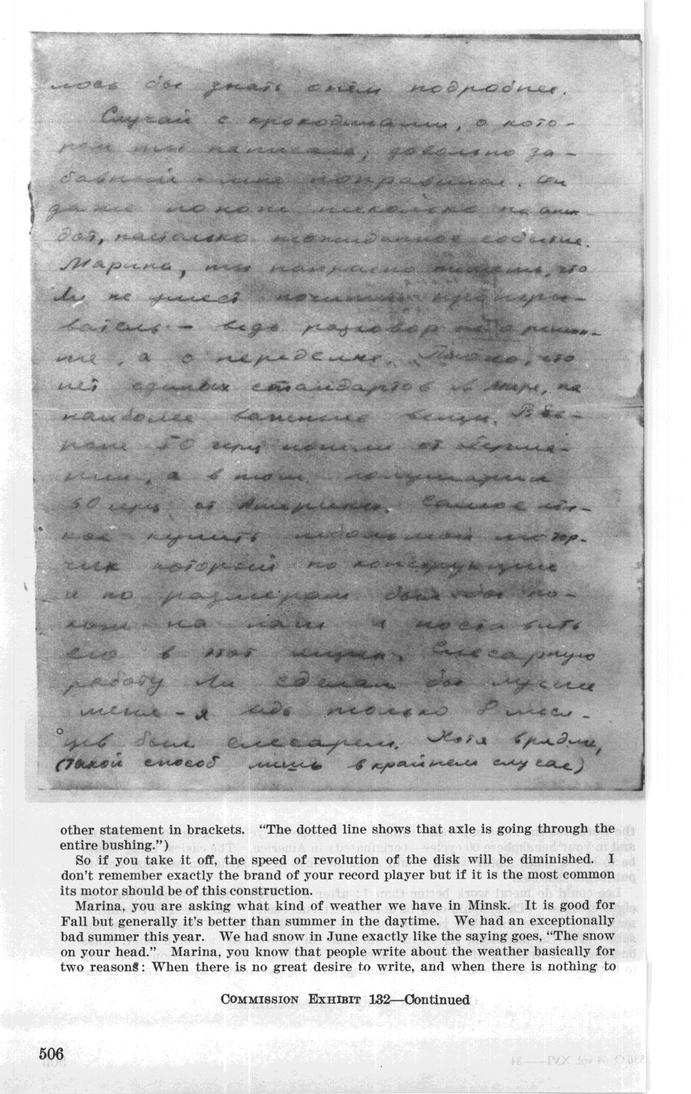 лось бы знать о нём подробнее.
Случай с крокодилами, о кото-
ром ты написала, довольно за-
бавный и мне понравился. Он
даже похож несколько на анек-
дот, настолько неожиданное событие.
Марина, ты напрасно пишешь, что
Ли не умеет починить проигры-
ватель — ведь разговор не о ремон-
те, а о переделке. Плохо, что
нет единых стандартов в мире, на
наиболее важные вещи. В Ев-
ропе 50 герц пошли от Герма-
нии, а в том полушарии
60 герц от Америки. Самое
купить небольшой мотор-
чик который по конструкции
и по размерам был бы по-
хож на наш и поставить
его в этот ящик. Слесарную
работу Ли сделал бы лучше
меня - я ведь только 8 меся-
цев был слесарем. Хотя врядли,
(такой способ лишь в крайнем случае)
other statement in brackets. "The dotted line shows that axle is going through the
entire bushing.")
So if you take it off, the speed of revolution of the disk will be diminished. I
don't remember exactly the brand of your record player but if it is the most common
its motor should be of this construction.
Marina, you are asking what kind of weather we have in Minsk. It is good for
Fall but generally it's better than summer in the daytime. We had an exceptionally
bad summer this year. We had snow in June exactly like the saying goes, "The snow
on your head." Marina, you know that people write about the weather basically for
two reasons: When there is no great desire to write, and when there is nothing to
COMMISSION EXHIBIT 132—Continued
506